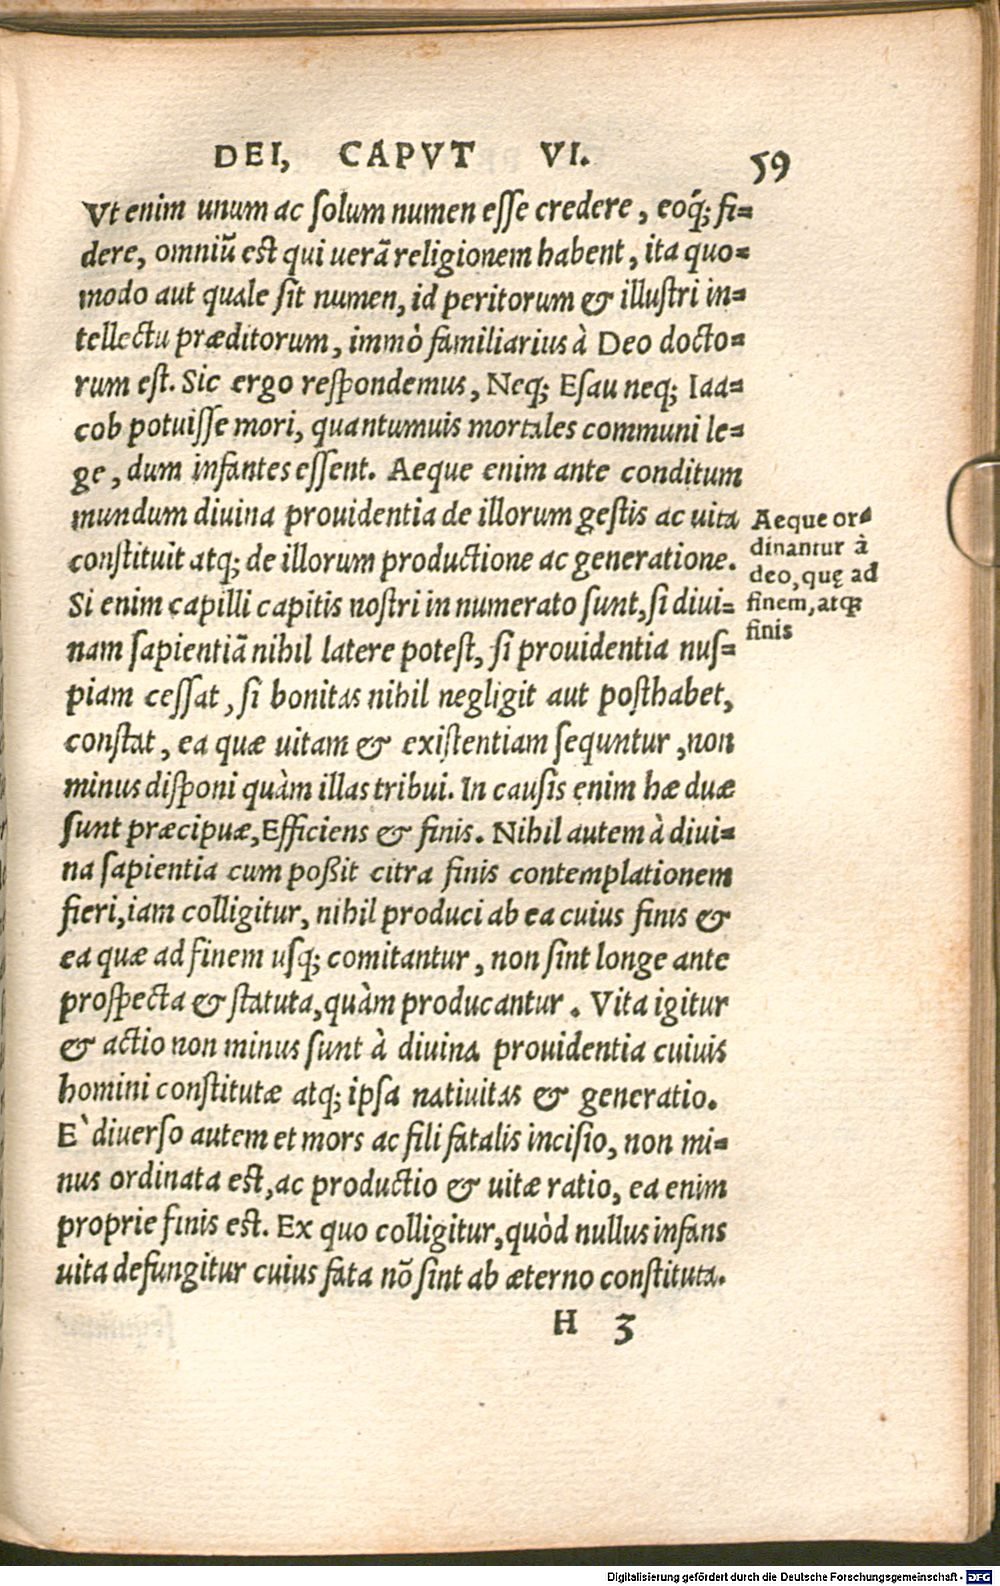 DEI, CAPVT VI. 59
Vt enim unum ac ſolum numen eſſe credere, eoq́; fi-
dere, omniũ est qui uerã religionem habent, ita quo-
modo aut quale ſit numen, id peritorum & illuſtri in-
tellectu præditorum, immò familiarius à Deo docto-
rum eſt. Sic ergo reſpondemus, Neq; Eſau neq; Iaa-
cob potuiſſe mori, quantumuis mortales communi le-
ge, dum infantes eſſent. Aeque enim ante conditum
mundum diuina prouidentia de illorum geſtis ac uita
conſtituit atq; de illorum productione ac generatione.
Si enim capilli capitis noſtri in numerato ſunt, ſi diui-
nam sapientiã nihil latere poteſt, ſi prouidentia nuſ-
piam ceſſat, ſi bonitas nihil negligit aut poſthabet,
conſtat, ea quæ uitam & exiſtentiam ſequntur, non
minus diſponi quàm illas tribui. In cauſis enim hæ duæ
ſunt præcipuæ, Efficiens & finis. Nihil autem à diui-
na sapientia cum poßit citra finis contemplationem
fieri, iam colligitur, nihil produci ab ea cuius finis &
ea quæ ad finem uſq; comitantur, non ſint longe ante
proſpecta & ſtatuta, quàm producantur. Vita igitur
& actio non minus ſunt à diuina prouidentia cuiuis
homini conſtitutæ atq; ipſa natiuitas & generatio.
E` diuerſo autem et mors ac fili fatalis inciſio, non mi-
nus ordinata eſt, ac productio & uitæ ratio, ea enim
proprie finis eſt. Ex quo colligitur, quòd nullus infans
uita defungitur cuius fata nõ ſint ab æterno conſtituta.
H 3
Aeque or-
dinantur à
deo, quę ad
finem, atq;
finis
Digitalisierung gefördert durch die Deutsche Forschungsgemeinschaft - DFG